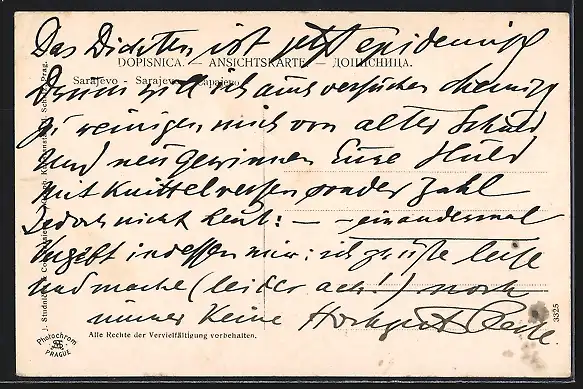 Das Dichten ist jetzt epidemisch
DOPISNICA. — ANSICHTSKARTE — ДОПИСНИЦА.
Sarajevo - Sarajevo - Сарајево
Drum will ich auch versuchen chemisch
zu reinigen mich von alter Schuld
Und neu gewinnen Eure Huld
Mit Knittelversen sonder Zahl
Jedoch nicht heut: — – ein andermal
Vergebt indessen mir: ich grüsse leise
Und mache (leider ach!) noch
immer keine Hochzeitsreise.
Alle Rechte der Vervielfältigung vorbehalten.
Photochrom
PRAGUE
3325